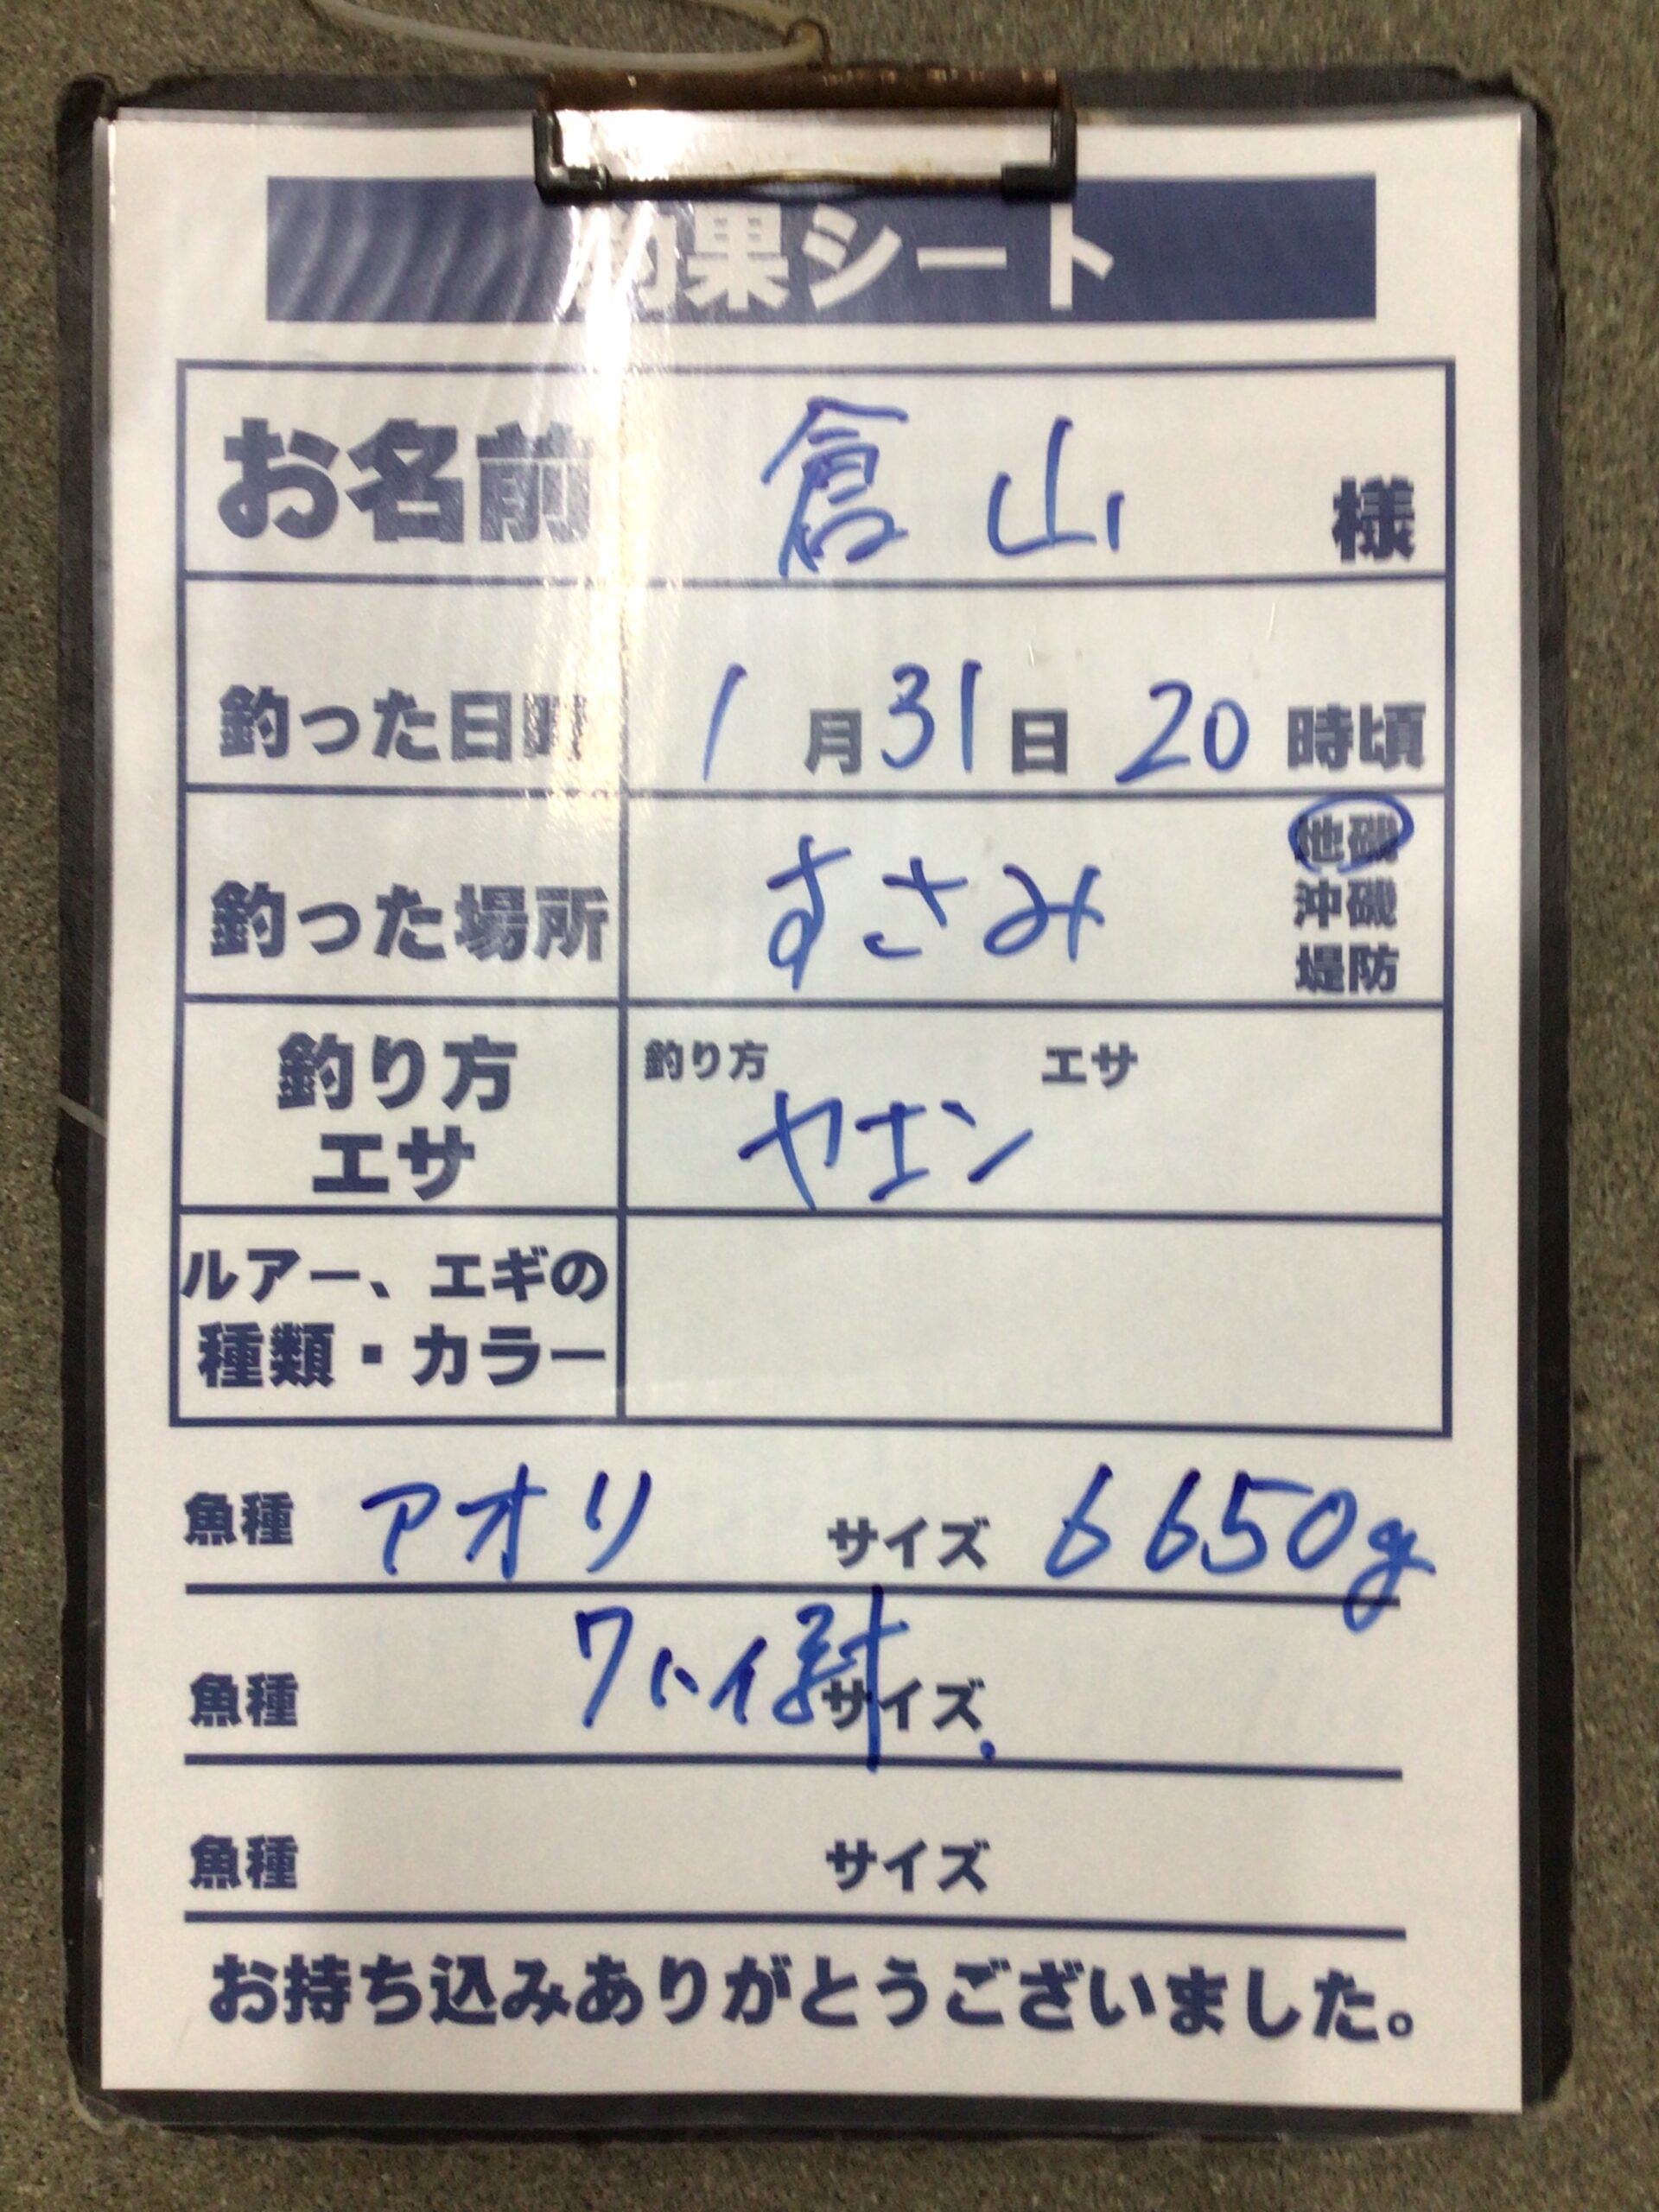 釣果シート
お名前 倉山 様
釣った日時 1月31日 20時頃
釣った場所 すさみ 地磯
沖磯
堤防
釣り方 釣り方 エサ
エサ ヤエン
ルアー、エギの
種類・カラー
魚種 アオリ サイズ 6650g
魚種 7ハイ サイズ
魚種 サイズ
お持ち込みありがとうございました。